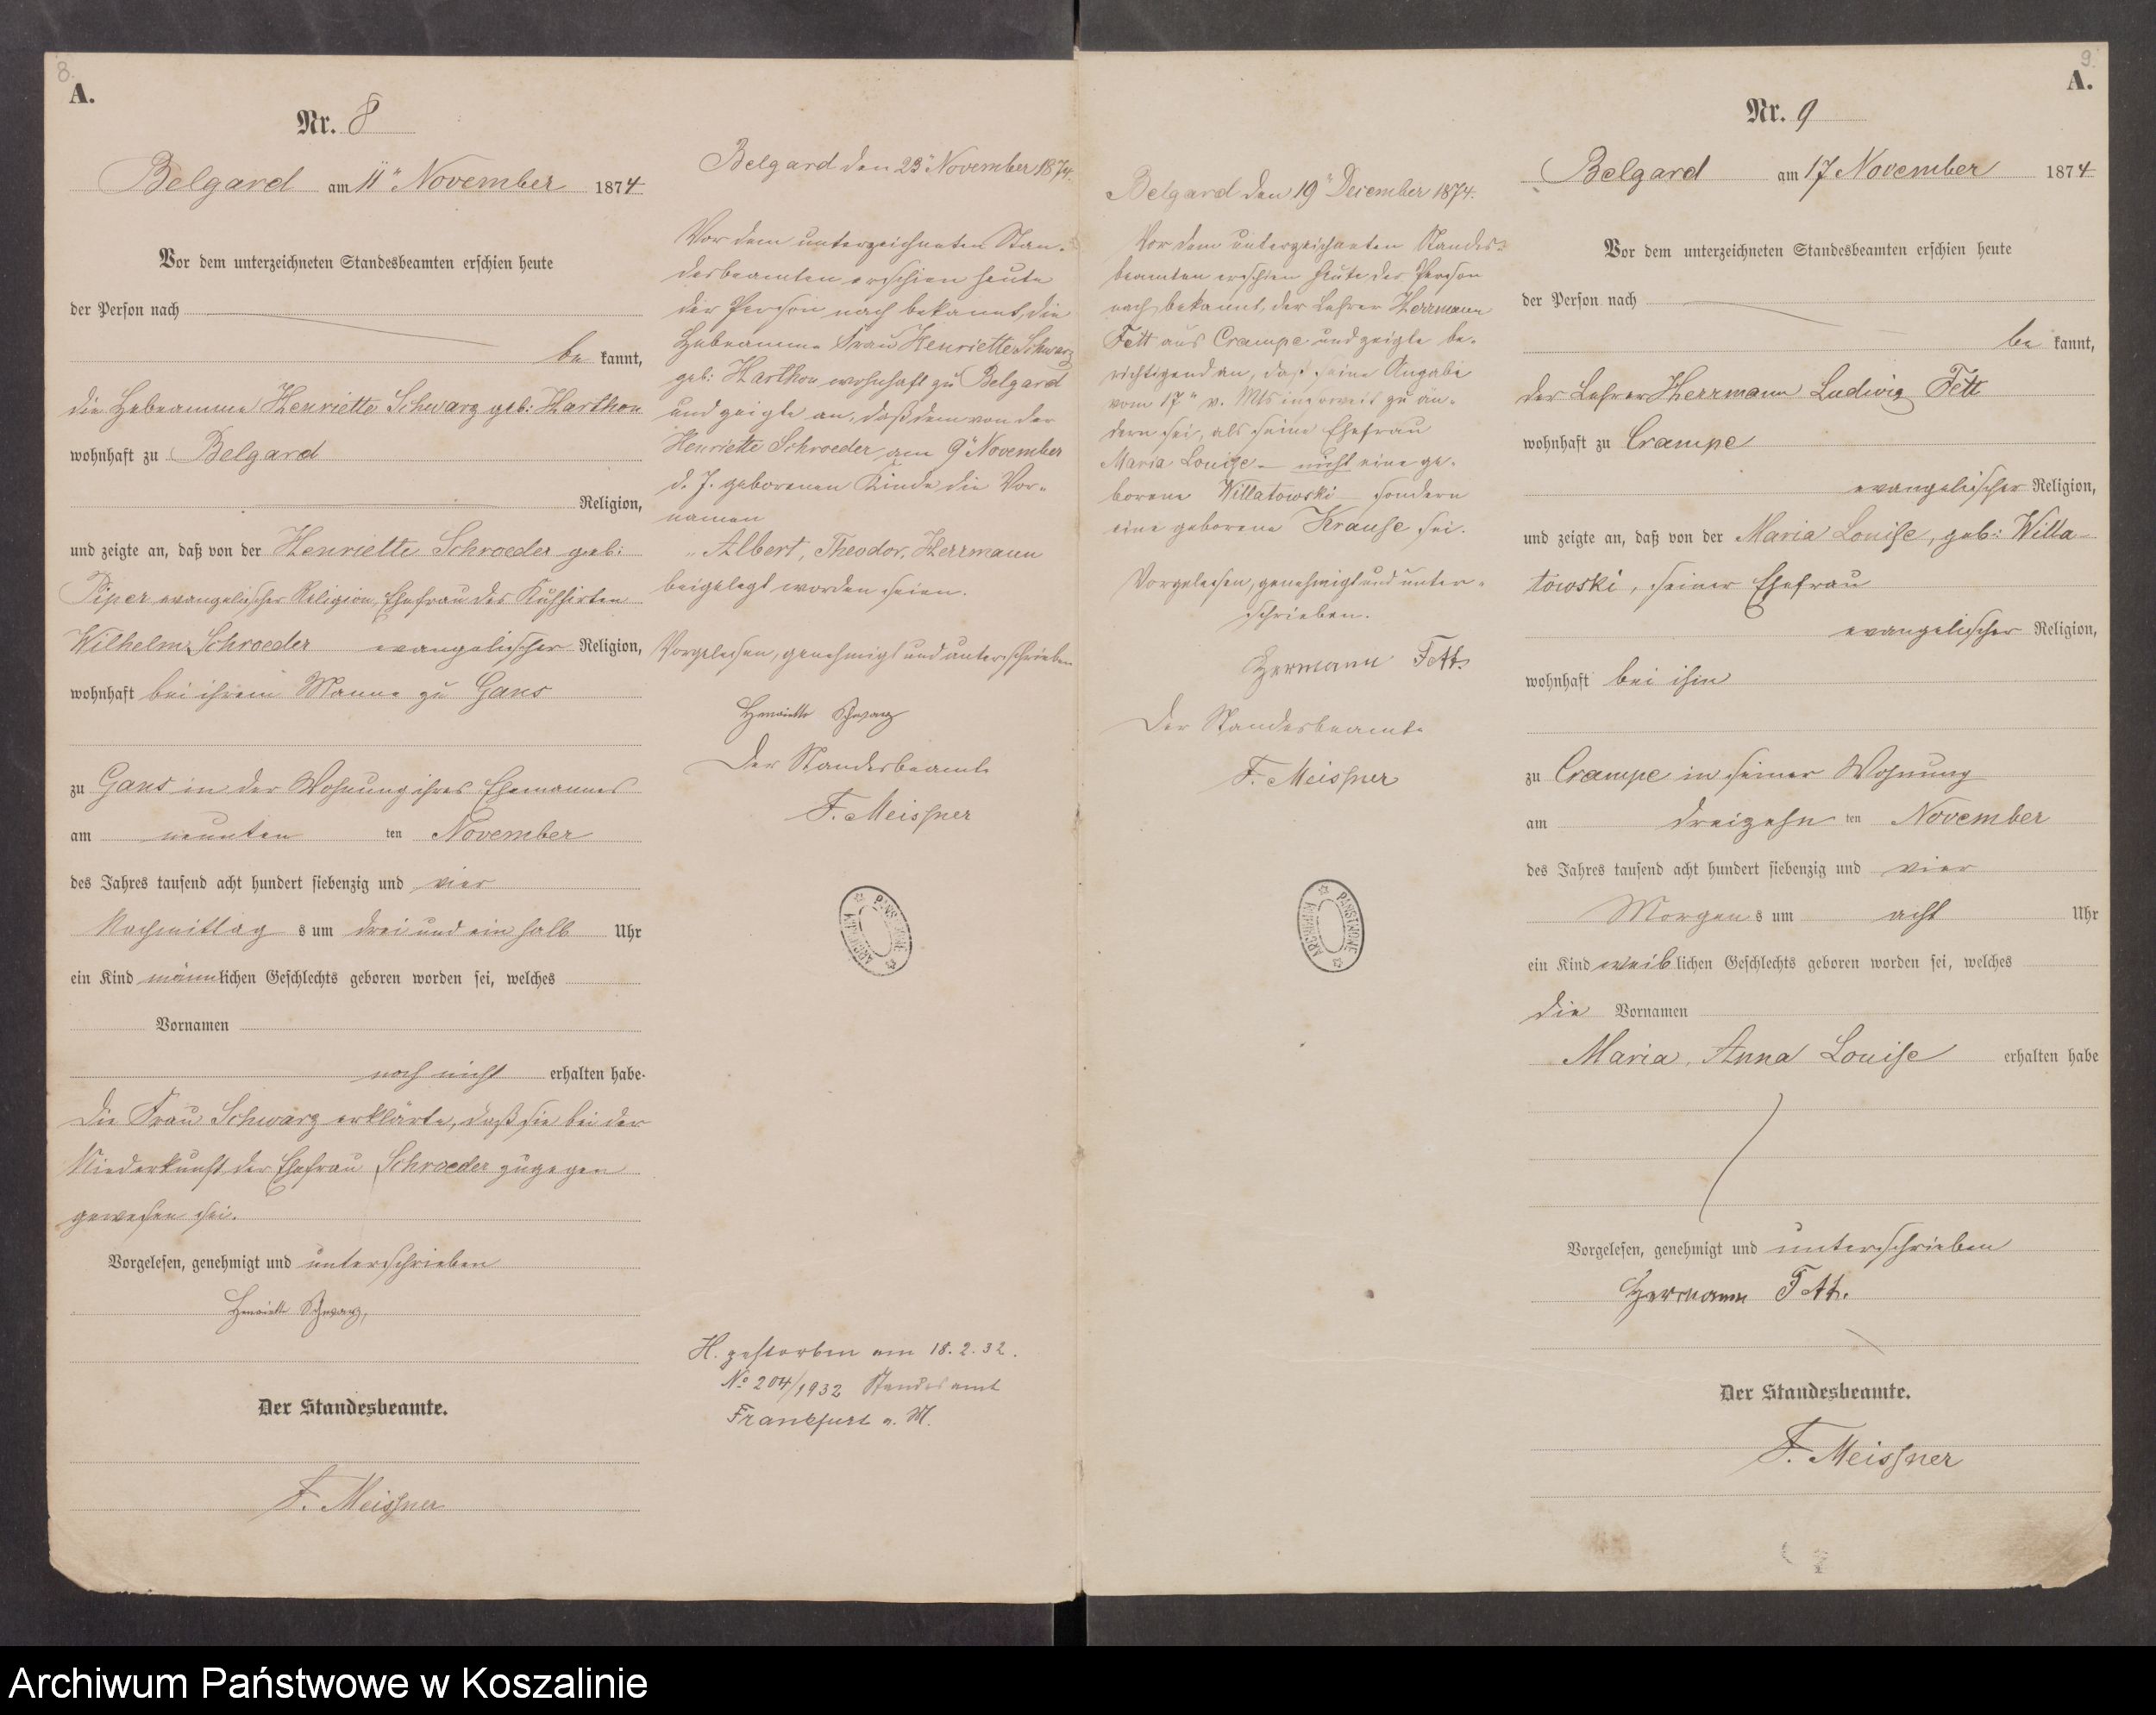 8.
A.
Nr. 8
Belgard am 11" November 1874
Vor dem unterzeichneten Standesbeamten erschien heute
der Person nach
be kannt,
die Hebeamme Henriette Schwarz geb: Harthon
wohnhaft zu Belgard
Religion,
und zeigte an, daß von der Henriette Schroeder geb:
Piper evangelischer Religion, Ehefrau des Kuhhirten
Wilhelm Schroeder evangelischer Religion,
wohnhaft bei ihrem Manne zu Gans
zu Gans in der Wohnung ihres Ehemannes
am neunten ten November
des Jahres tausend acht hundert siebenzig und vier
Nachmittag s um drei und ein halb Uhr
ein Kind männlichen Geschlechts geboren worden sei, welches
Vornamen
noch nicht erhalten habe.
Die Frau Schwarz erklärte, daß sie bei der
Niederkunft der Ehefrau Schroeder zugegen
gewesen sei.
Vorgelesen, genehmigt und unterschrieben
Henriette Schwarz,
Der Standesbeamte.
F. Meissner
Belgard den 23" November 1874
Vor dem unterzeichneten Stan-
desbeamten erschien heute
der Person nach bekannt, die
Hebeamme Frau Henriette Schwarz
geb: Harthon wohnhaft zu Belgard
und zeigte an, daß dem von der
Henriette Schroeder am 9" November
d. J. geborenen Kinde die Vor-
namen
"Albert, Theodor, Herrmann
beigelegt worden seien.
Vorgelesen, genehmigt und unterschrieben
Henriette Schwarz
Der Standesbeamte
F. Meissner
H. gestorben am 18.2.32.
No 204/1932 Standesamt
Frankfurt a. M.
Belgard den 19" December 1874.
Vor dem unterzeichneten Standes-
beamten erschien heute der Person
nach bekannt, der Lehrer Herrmann
Fett aus Crampe und zeigte be-
richtigend an, daß seine Angabe
vom 17" v. Mts insoweit zu än-
dern sei, als seine Ehefrau
Maria Louise - nicht eine ge-
borene Willatowski - sondern
eine geborene Krause sei.
Vorgelesen, genehmigt und unter-
schrieben.
Hermann Fett.
Der Standesbeamte
F. Meissner
PAŃSTWOWE
ARCHIWUM
9.
A.
Nr. 9
Belgard am 17 November 1874
Vor dem unterzeichneten Standesbeamten erschien heute
der Person nach
be kannt,
der Lehrer Herrmann Ludwig Fett
wohnhaft zu Crampe
evangelischer Religion,
und zeigte an, daß von der Maria Louise, geb: Willa-
towski, seiner Ehefrau
evangelischer Religion,
wohnhaft bei ihm
zu Crampe in seiner Wohnung
am dreizehn ten November
des Jahres tausend acht hundert siebenzig und vier
Morgen s um acht Uhr
ein Kind weiblichen Geschlechts geboren worden sei, welches
die Vornamen
Maria, Anna Louise erhalten habe
Vorgelesen, genehmigt und unterschrieben
Hermann Fett.
Der Standesbeamte.
F. Meissner
Archiwum Państwowe w Koszalinie